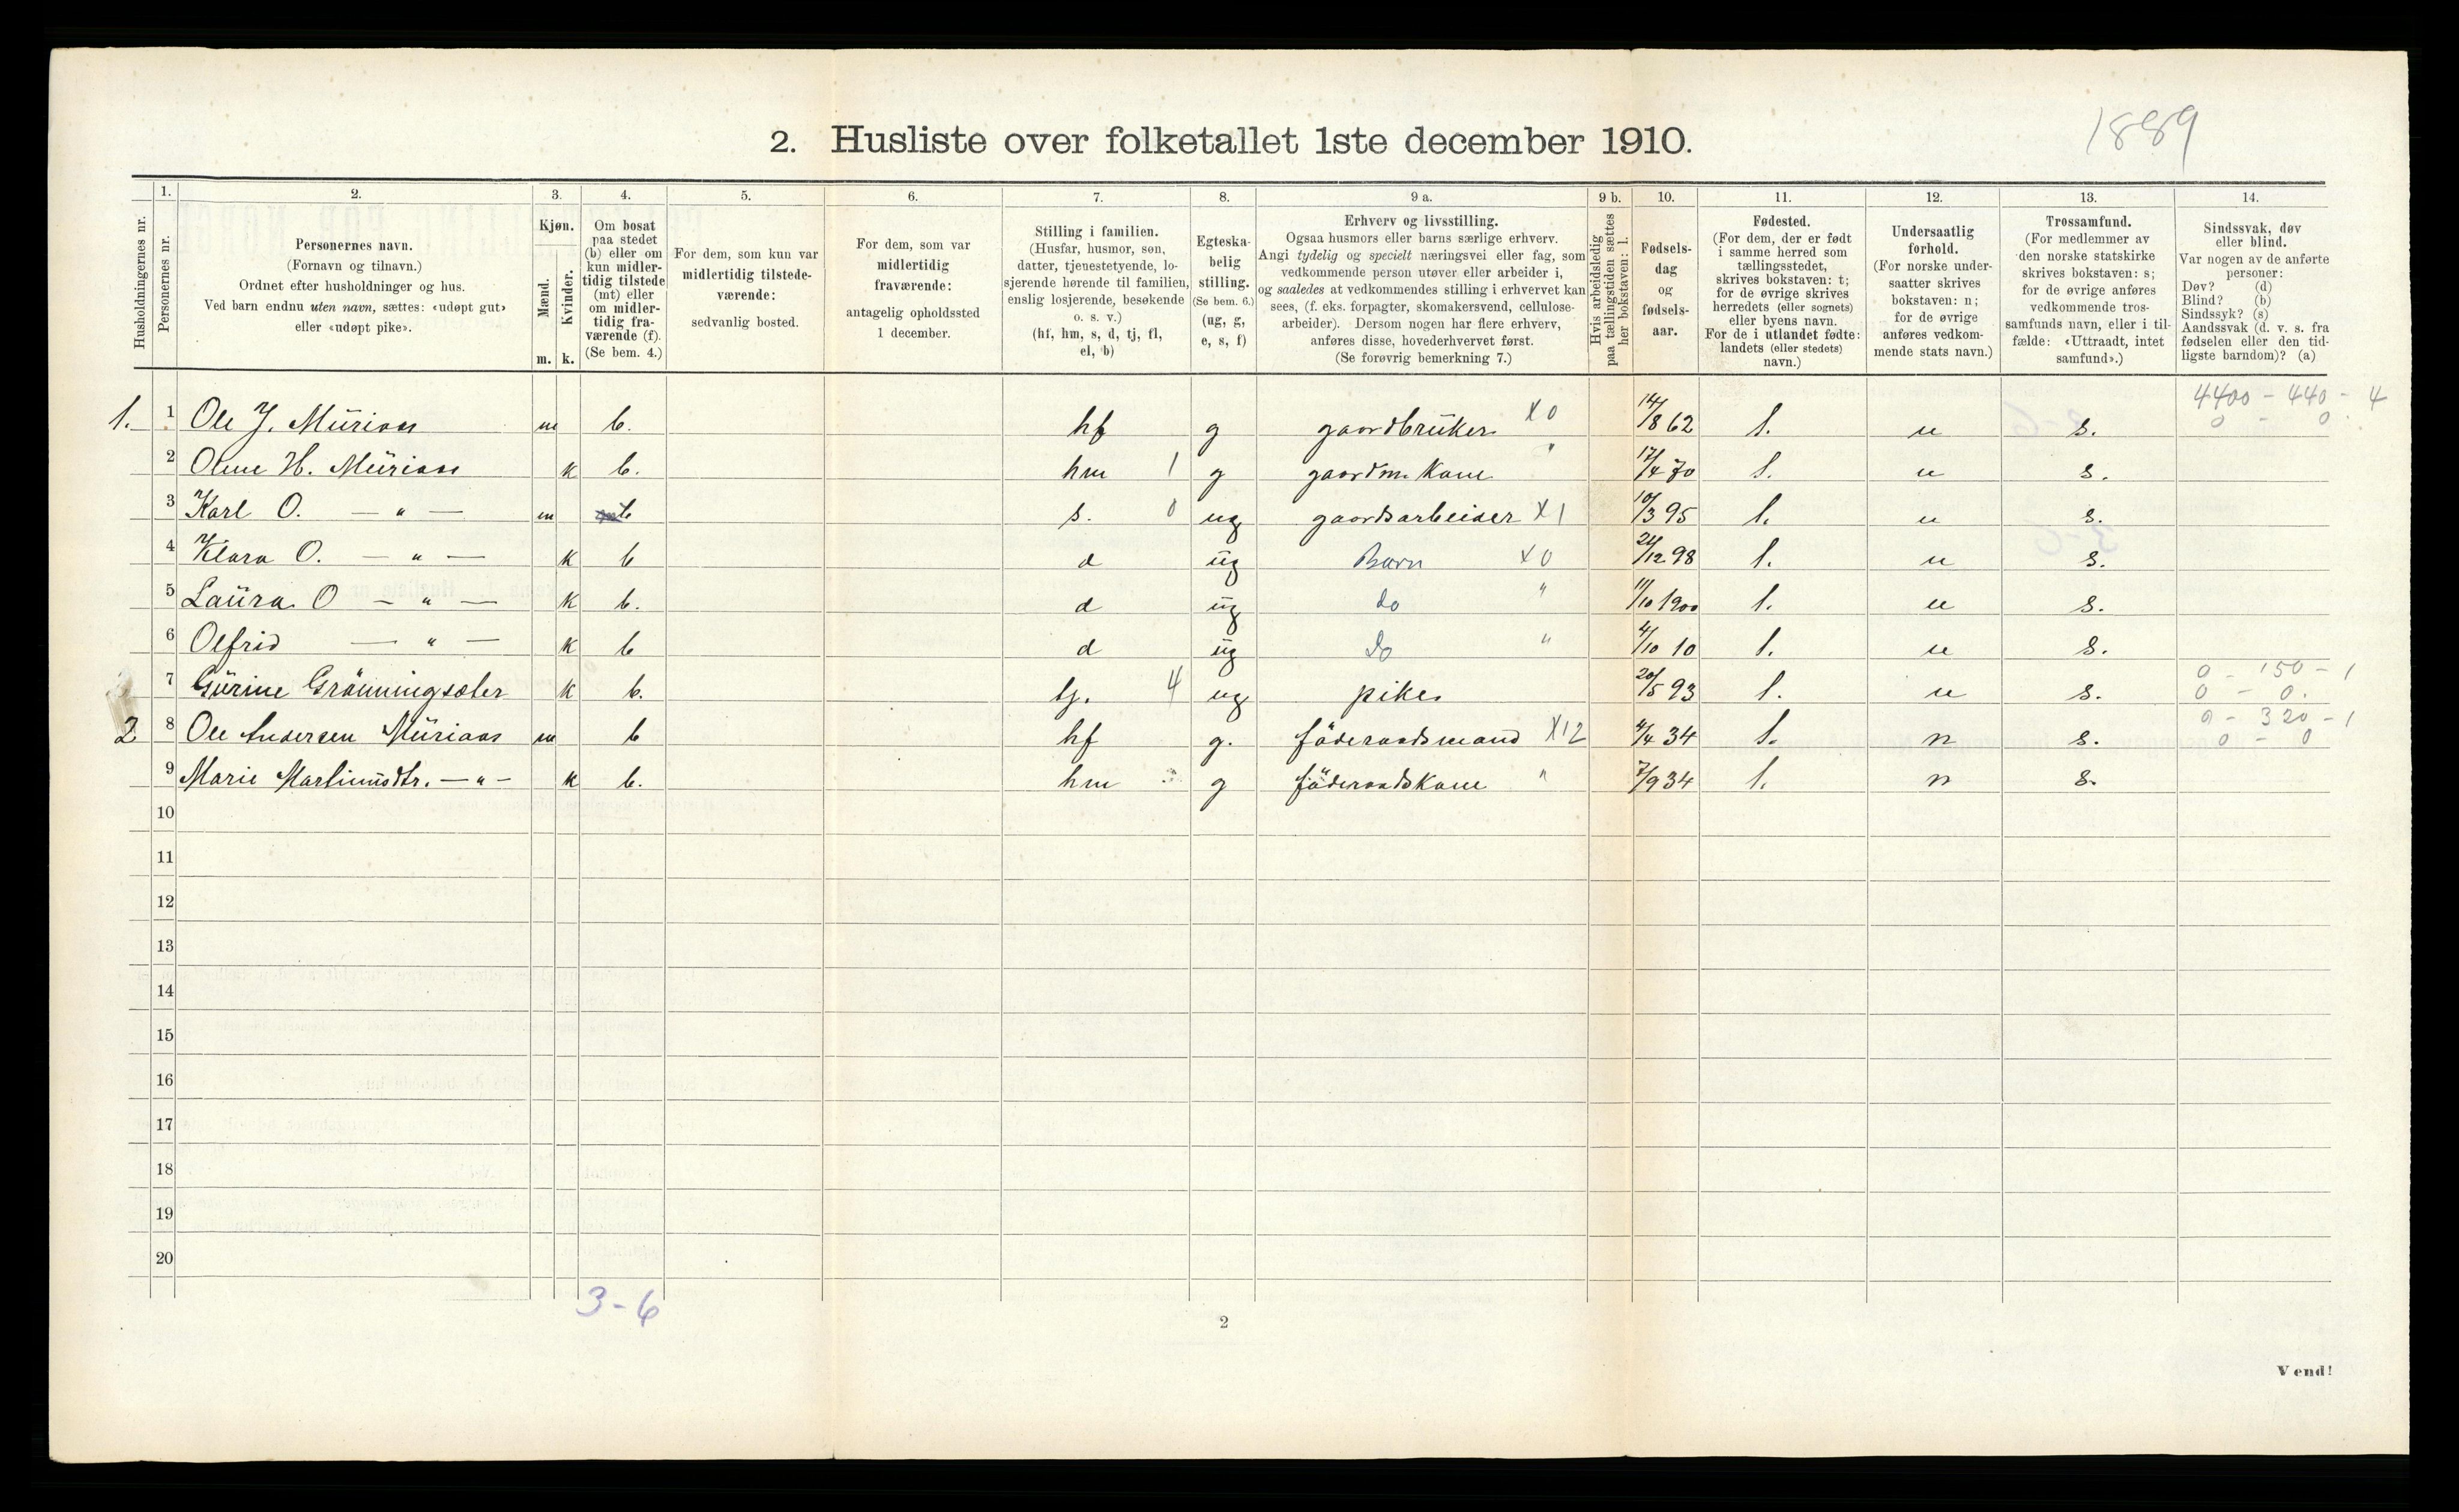 1889
2. Husliste over folketallet 1ste december 1910.
Husholdningernes nr.
1. Personernes nr.
2. Personernes navn. (Fornavn og tilnavn.) Ordnet efter husholdninger og hus. Ved barn endnu uten navn, sættes: «udøpt gut» eller «udøpt pike».
3. Kjøn. Mænd. m. Kvinder. k.
4. Om bosat paa stedet (b) eller om kun midlertidig tilstede (mt) eller om midlertidig fraværende (f). (Se bem. 4.)
5. For dem, som kun var midlertidig tilstedeværende: sedvanlig bosted.
6. For dem, som var midlertidig fraværende: antagelig opholdssted 1 december.
7. Stilling i familien. (Husfar, husmor, søn, datter, tjenestetyende, losjerende hørende til familien, enslig losjerende, besøkende o. s. v.) (hf, hm, s, d, tj, fl, el, b)
8. Egteskabelig stilling. (Se bem. 6.) (ug, g, e, s, f)
9 a. Erhverv og livsstilling. Ogsaa husmors eller barns særlige erhverv. Angi tydelig og specielt næringsvei eller fag, som vedkommende person utøver eller arbeider i, og saaledes at vedkommendes stilling i erhvervet kan sees, (f. eks. forpagter, skomakersvend, cellulosearbeider). Dersom nogen har flere erhverv, anføres disse, hovederhvervet først. (Se forøvrig bemerkning 7.)
9 b. Hvis arbeidsledig paa tællingstiden sættes her bokstaven: l.
10. Fødselsdag og fødselsaar.
11. Fødested. (For dem, der er født i samme herred som tællingsstedet, skrives bokstaven: t; for de øvrige skrives herredets (eller sognets) eller byens navn. For de i utlandet fødte: landets (eller stedets) navn.)
12. Undersaatlig forhold. (For norske undersaatter skrives bokstaven: n; for de øvrige anføres vedkommende stats navn.)
13. Trossamfund. (For medlemmer av den norske statskirke skrives bokstaven: s; for de øvrige anføres vedkommende trossamfunds navn, eller i tilfælde: «Uttraadt, intet samfund».)
14. Sindssvak, døv eller blind. Var nogen av de anførte personer: Døv? (d) Blind? (b) Sindssyk? (s) Aandssvak (d. v. s. fra fødselen eller den tidligste barndom)? (a)
4400 - 440 - 4
1. 1 Ole J. Müriaas m b. hf g gaardbrüker X0 14/8 62 t. n s. 0 - 0
2 Oline H. Müriaas k b. hm 1 g gaardm. Kone " 17/4 70 t. n s.
3 Karl O. — " — m b s. 0 ug gaardsarbeider X1 10/3 95 t. n s.
4 Klara O. — " — k b d ug Barn X0 24/12 98 t. n s.
5 Laüra O — " — k b. d ug do " 11/10 1900 t. n s.
6 Olfrid — " — k b d ug do " 4/10 10 t. n s.
0 - 150 - 1
7 Gürine Grönningsæter k b. tj. 4 ug pike 20/5 93 t. n s. 0 - 0.
0 - 320 - 1
2 8 Ole Andersen Müriaas m b hf g. föderaadsmand X12 4/4 34 t. n s. 0 - 0
9 Marie Martinusdtr. — " — k b. hm g föderaadskone " 7/9 34 t. n s.
10
11
12
13
14
15
16
17
18
19
20
3 - 6
2
Vend!